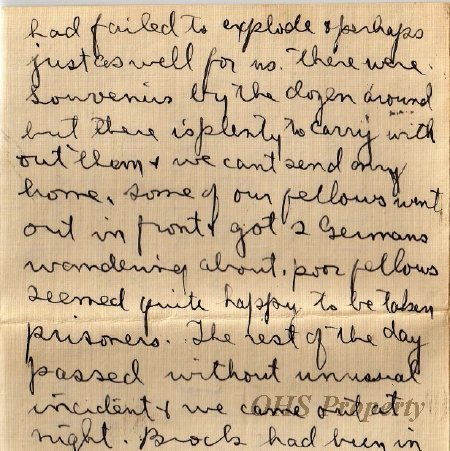 had failed to explode & perhaps
just as well for us. There were
souvenirs by the dozen around
but there is plenty to carry with
out them & we cant send any
home. Some of our fellows went
out in front & got 2 Germans
wandering about. poor fellows
seemed quite happy to be taken
prisoners. The rest of the day
passed without unusual
incident & we came out at
night. Brock had been in
OHS Property